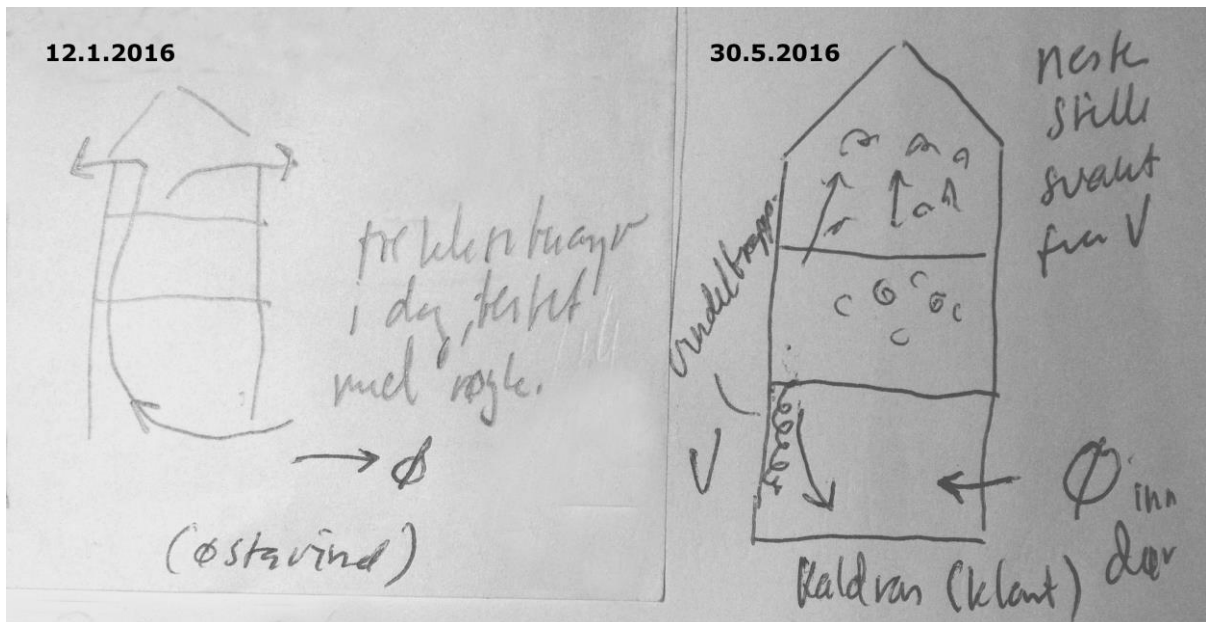 12.1.2016
i dag, testet
med røyk.
Ø
(østavind)
30.5.2016
nesten
stille
svakt
fra V
vindeltrapp.
V
Ø inn
dør
Kaldras (klart)